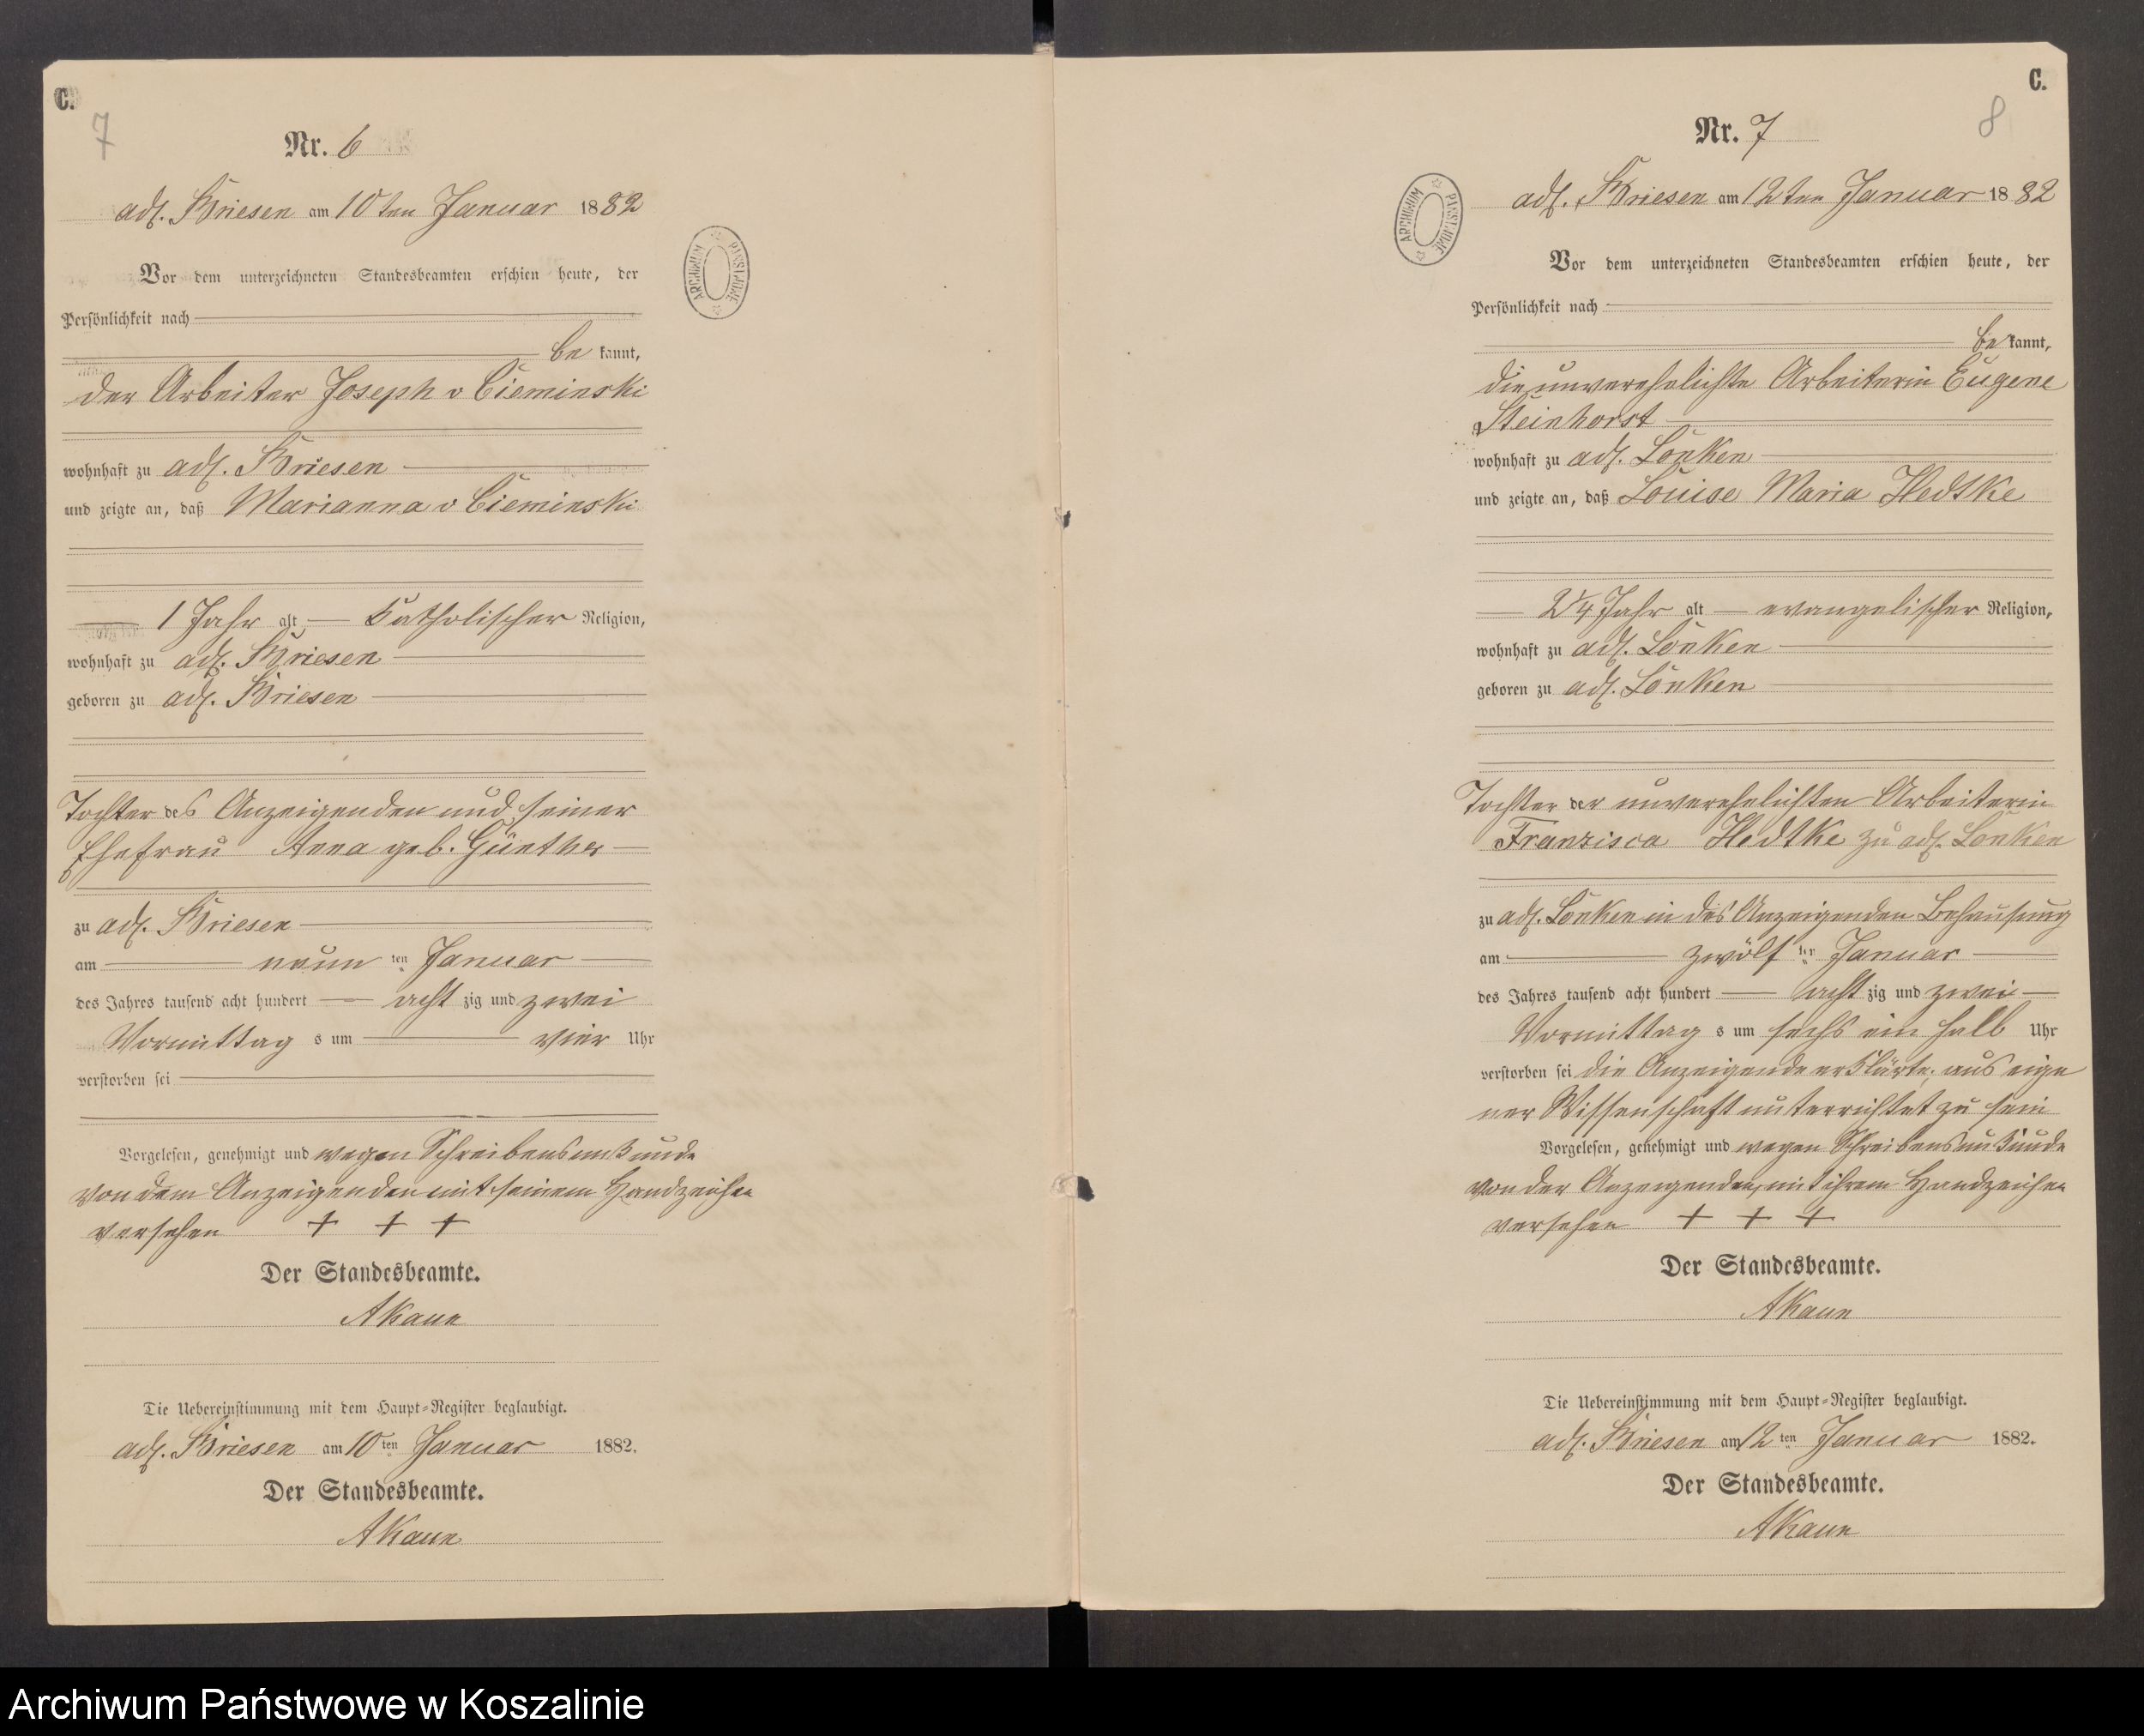 C.
7
Nr. 6
adl. Briesen am 10ten Januar 1882
Vor dem unterzeichneten Standesbeamten erschien heute, der
Persönlichkeit nach
be kannt,
der Arbeiter Joseph v Cieminski
wohnhaft zu adl. Briesen
und zeigte an, daß Marianna v Cieminski
1 Jahr alt Katholischer Religion,
wohnhaft zu adl. Briesen
geboren zu adl. Briesen
Tochter des Anzeigenden und seiner
Ehefrau Anna geb. Günther
zu adl. Briesen
am neun ten Januar
des Jahres tausend acht hundert acht zig und zwei
Vormittag s um vier Uhr
verstorben sei
Vorgelesen, genehmigt und wegen Schreibensunkunde
von dem Anzeigenden mit seinem Handzeichen
versehen + + +
Der Standesbeamte.
AKaun
Die Uebereinstimmung mit dem Haupt-Register beglaubigt.
adl. Briesen am 10ten Januar 1882.
Der Standesbeamte.
AKaun
ARCHIWUM PAŃSTWOWE
C.
8
Nr. 7
adl. Briesen am 12ten Januar 1882
Vor dem unterzeichneten Standesbeamten erschien heute, der
Persönlichkeit nach
be kannt,
die unverehelichte Arbeiterin Eugene
Steinhorst
wohnhaft zu adl. Lonken
und zeigte an, daß Louise Maria Hedtke
2 1/4 Jahr alt evangelischer Religion,
wohnhaft zu adl. Lonken
geboren zu adl. Lonken
Tochter der unverehelichten Arbeiterin
Franzisca Hedtke zu adl. Lonken
zu adl. Lonken in des Anzeigenden Behausung
am zwölf ten Januar
des Jahres tausend acht hundert acht zig und zwei
Vormittag s um sechs ein halb Uhr
verstorben sei die Anzeigende erklärte, aus eige
ner Wissenschaft unterrichtet zu sein
Vorgelesen, genehmigt und wegen Schreibensunkunde
von der Anzeigenden mit ihrem Handzeichen
versehen + + +
Der Standesbeamte.
AKaun
Die Uebereinstimmung mit dem Haupt-Register beglaubigt.
adl. Briesen am 12ten Januar 1882.
Der Standesbeamte.
AKaun
ARCHIWUM PAŃSTWOWE
Archiwum Państwowe w Koszalinie